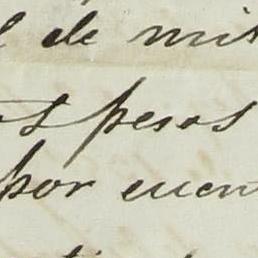 de mil
pesos
por cuen